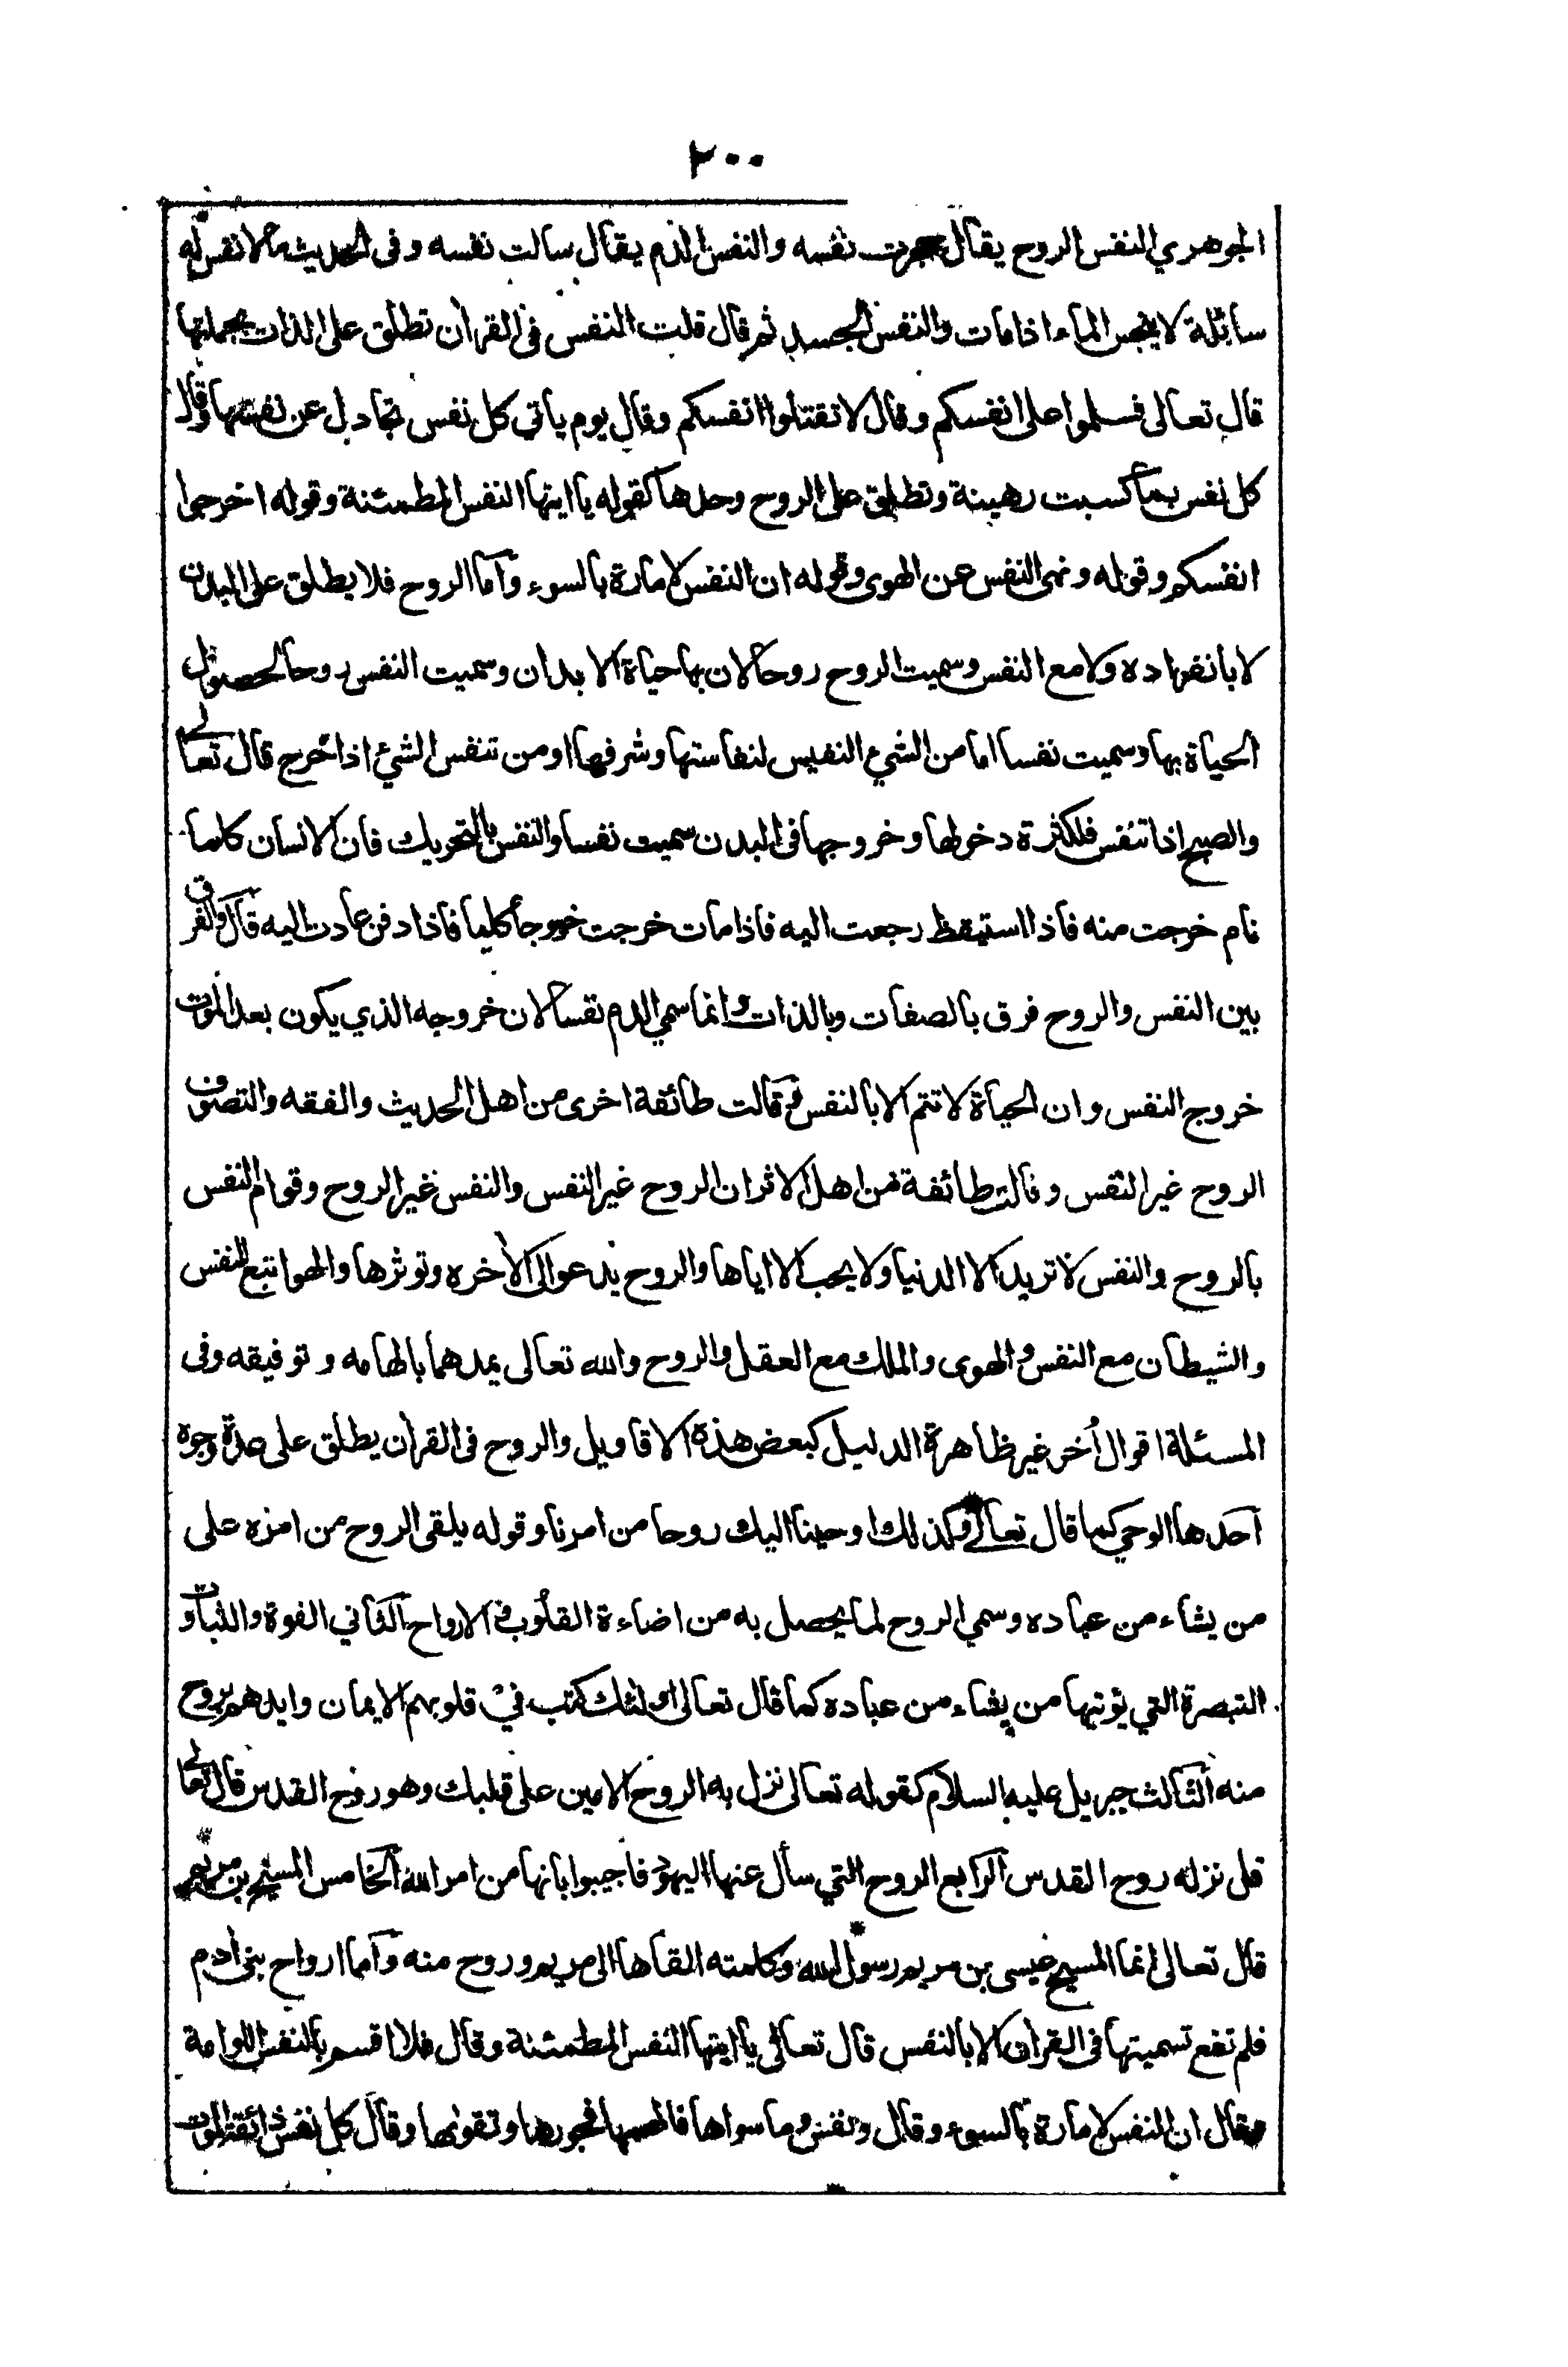 ٢٠٠
الجوهري النفس الروح يقال خرجت نفسه والنفس الدم يقال سالت نفسه وفى الحديث مالا نفس له
سائلة لا ينجس الماء اذا مات والنفس الجسد ثم قال قلت النفس فى القران تطلق على الذات بجملتها
قال تعالى فسلموا على انفسكم وقال لا تقتلوا انفسكم وقال يوم ياتي كل نفس تجادل عن نفسها وقال
كل نفس بما كسبت رهينة وتطلق على الروح وحدها كقوله يا ايتها النفس المطمئنة وقوله اخرجوا
انفسكم وقوله ونهى النفس عن الهوى وقوله ان النفس لامارة بالسوء واما الروح فلا يطلق على البدن
لا بانفراده ولا مع النفس وسميت الروح روحا لان بها حياة الابدان وسميت النفس روحا لحصول
الحياة بها وسميت نفسا اما من الشيء النفيس لنفاستها وشرفها او من تنفس الشئ اذا خرج قال تعالى
والصبح اذا تنفس فلكثرة دخولها وخروجها فى البدن سميت نفسا والنفس بالتحريك فان الانسان كلما
نام خرجت منه فاذا استيقظ رجعت اليه فاذا مات خرجت خروجا كليا فاذا دفن عادت اليه قال والفرق
بين النفس والروح فرق بالصفات وبالذات وانما سمي الدم نفسا لان خروجه الذي يكون بعد الموت
خروج النفس وان الحياة لا تتم الا بالنفس وقالت طائفة اخرى من اهل الحديث والفقه والتصوف
الروح غير النفس وقالت طائفة من اهل الاثر ان الروح غير النفس والنفس غير الروح وقوام النفس
بالروح والنفس لا تريد الا الدنيا ولا يحب الا اياها والروح يدعوا الى الأخره وتوثرها والهوا تتبع النفس
والشيطان مع النفس والهوى والملك مع العقل والروح والله تعالى يمدهما بالهامه وتوفيقه وفى
المسئلة اقوال أخر غير ظاهرة الدليل كبعض هذه الاقاويل والروح فى القران يطلق على عدة وجوه
احدها الوحي كما قال تعالى وكذلك اوحينا اليك روحا من امرنا وقوله يلقى الروح من امره على
من يشاء من عباده وسمي الروح لما يحصل به من اضاءة القلوب فى الارواح الثاني القوة والثبات و
التبصرة التي يؤتيها من يشاء من عباده كما قال تعالى اولئك كتب في قلوبهم الايمان وايدهم بروح
منه الثالث جبريل عليه السلام كقوله تعالى نزل به الروح الامين على قلبك وهو روح القدس قال تعالى
قل نزله روح القدس الرابع الروح التي سأل عنها اليهود فاجيبوا بانها من امر الله الخامس المسيح بن مريم
قال تعالى انما المسيح عيسى بن مريم رسول الله وكلمته القاها الى مريم وروح منه واما ارواح بنى أدم
فلم تقع تسميتها فى القران الا بالنفس قال تعالى يا ايتها النفس المطمئنة وقال فلا اقسم بالنفس اللوامة
وقال ان النفس لامارة بالسوء وقال ونفس وما سواها فالهمها فجورها وتقوىها وقال كل نفس ذائقة الموت